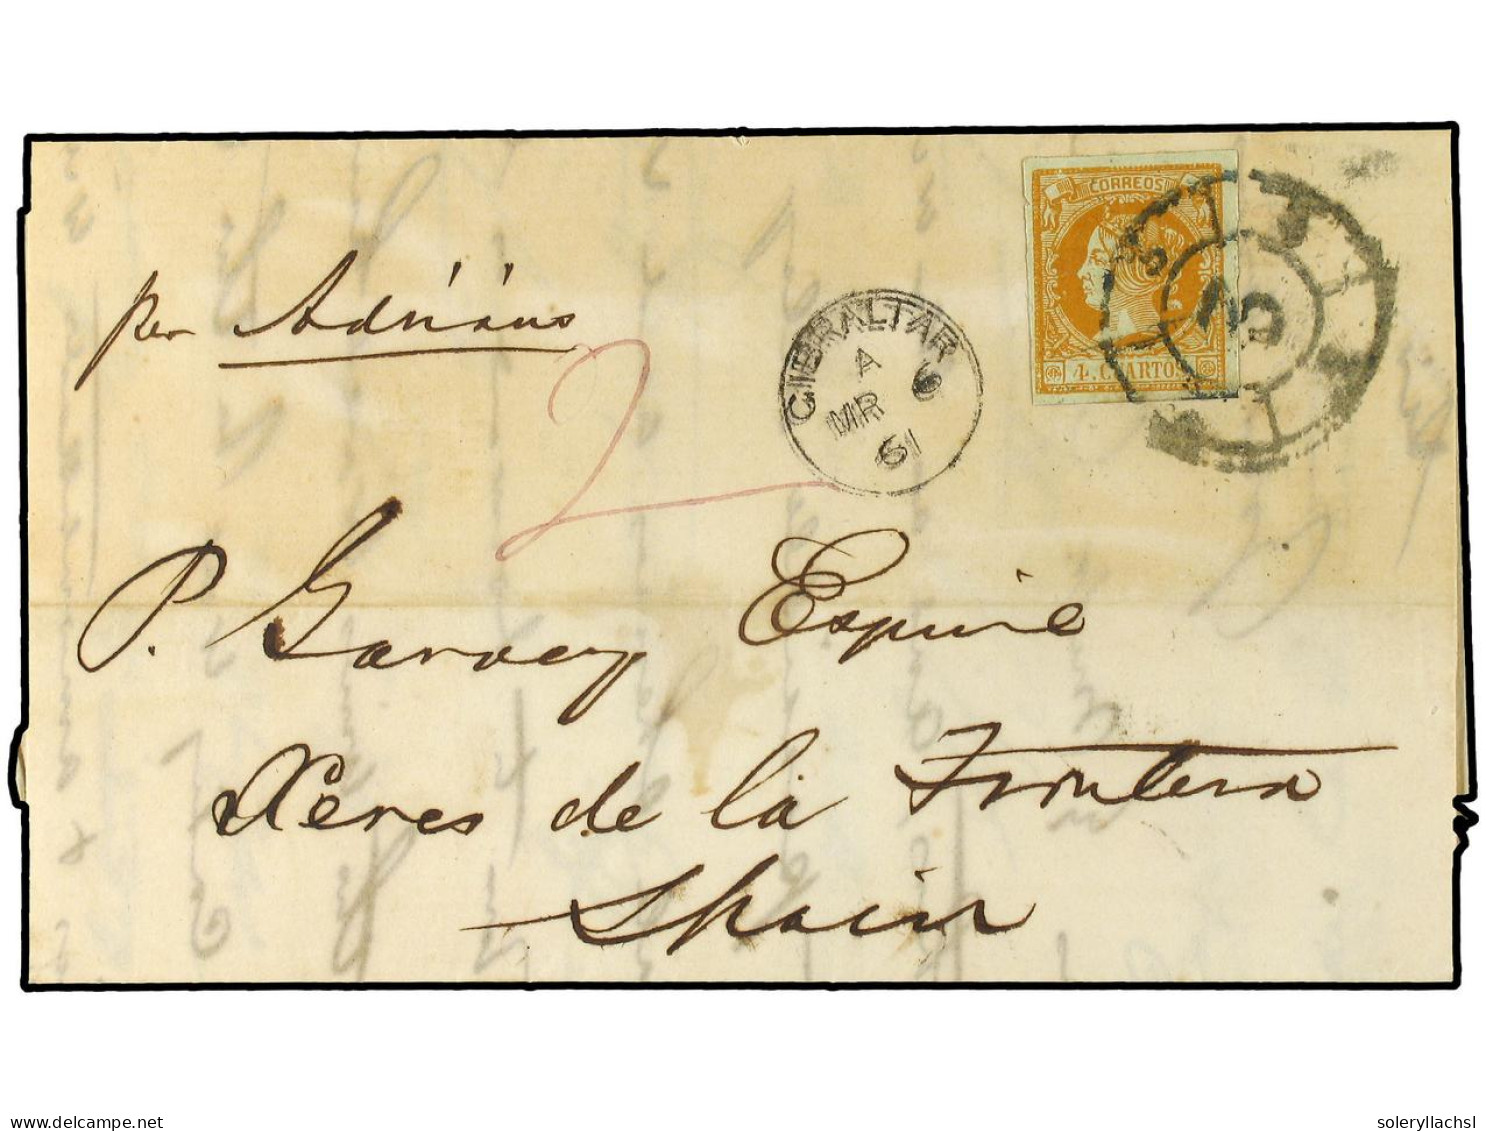 CORREOS
4 CUARTOS
GIBRALTAR
A
MR 6
61
per Adriáus
2
P. Garvey Esquire
Xeres de la Frontera
Spain
delcampe.net
soleryllachsl